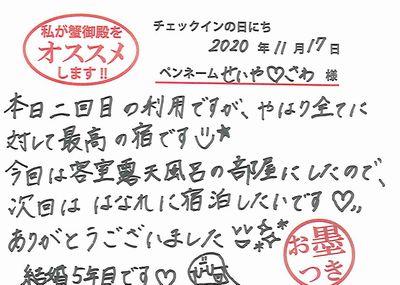 私が蟹御殿を
オススメ
します!!
チェックインの日にち
2020 年 11 月 17 日
ペンネーム せいや♡さわ 様
本日二回目の利用ですが、やはり全てに
対して最高の宿です☺★
今回は客室露天風呂の部屋にしたので、
次回は はなれに宿泊したいです♡,,
ありがとうございました
結婚5年目です♡
お墨
つき